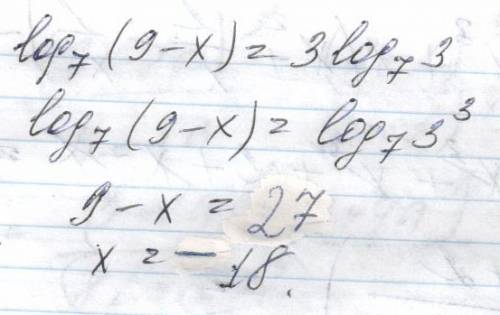 log₇(9-x) = 3log₇3
log₇(9-x) = log₇3³
9-x = 27
x = -18.